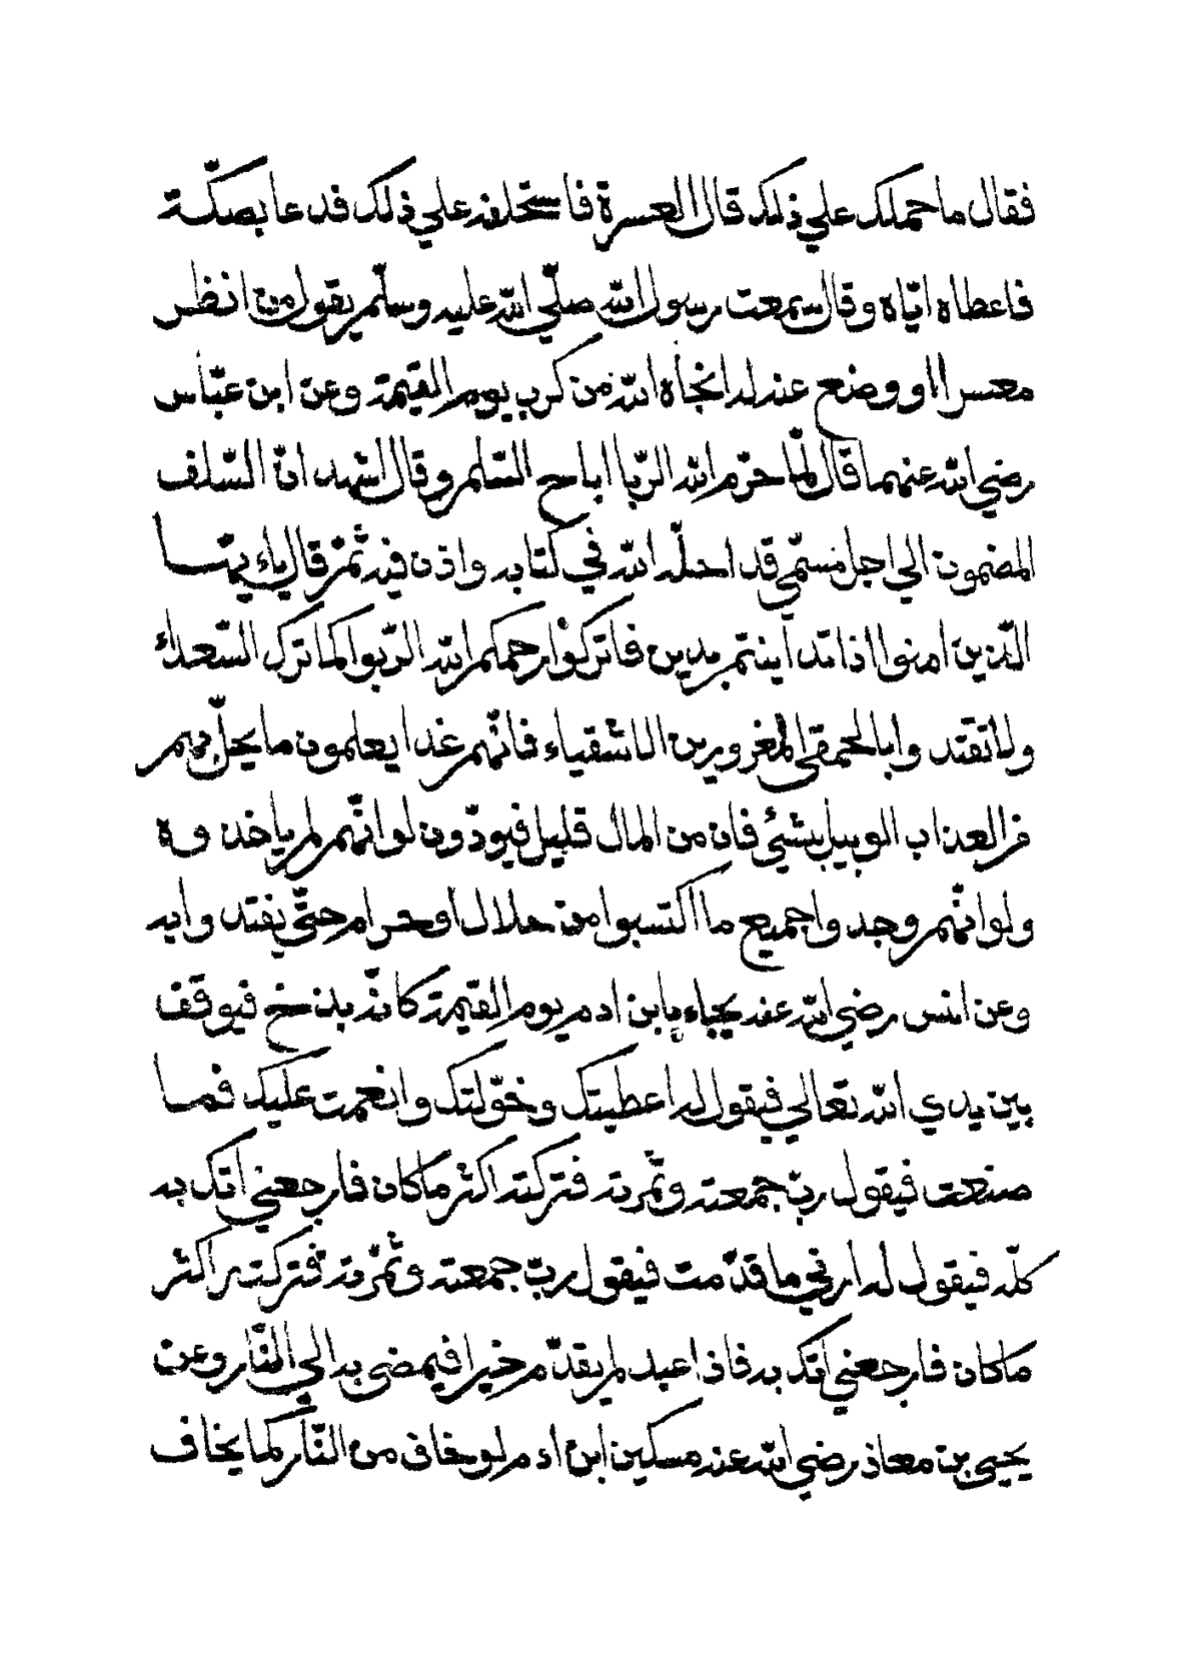 فقال ما حملك علي ذلك قال العسرة فاستحلفه علي ذلك فدعا بصكّه
فاعطاه ايّاه وقال سمعت رسول الله صلّي الله عليه وسلّم يقول من انظر
معسرا او وضع عنه له انجأه الله من كرب يوم القيمة وعن ابن عبّاس
رضي الله عنهما قال لمّا حرّم الله الرّبا اباح السّلم وقال اشهد انّ السّلف
المضمون الي اجل مسمّي قد احلّه الله في كتابه واذن فيه ثمّ قال ياءيّهـا
الّذين امنوا اذا تداينتم بدين فاتركوا رحمكم الله الرّبوا كما ترك السّعداء
ولا تقتدوا بالحمقي المغرورين الاشقياء فانّهم غدا يعلمون ما يحلّ بهم
من العذاب الوبيل بشيئ فان من المال قليل فيودّون لو انّهم لم ياخذوه
ولو انّهم وجدوا جميع ما اكتسبوا من حلال او حرام حتّي يفتدوا به
وعن انس رضي الله عنه يجاء بابن ادم يوم القيمة كانّه بذخ فيوقف
بين يدي الله تعالي فيقول له اعطيتك وخوّلتك وانعمت عليك فما
صنعت فيقول ربّ جمعته وثمّرته فتركته اكثر ما كان فارجعني اتك به
كلّه فيقول له ارني ما قدّمت فيقول ربّ جمعته وثمّرته فتركته اكثر
ما كان فارجعني اتك به فاذا عبد لم يقدّم خيرا فيمضي به الي النّار وعن
يحيي بن معاذ رضي الله عنه مسكين ابن ادم لو خاف من النّار كما يخاف